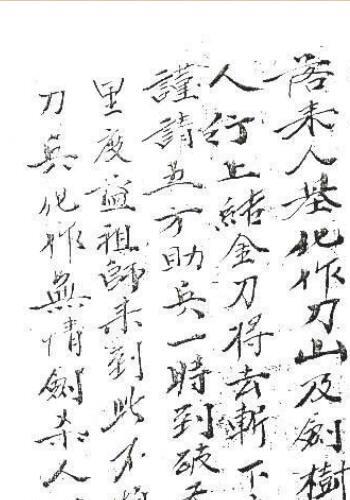 来人基化作刀山及劍樹
人行上結金刀将去斬下
謹請五方助兵一時到破
里度祖師来到此不
刀兵化作無情劍杀人